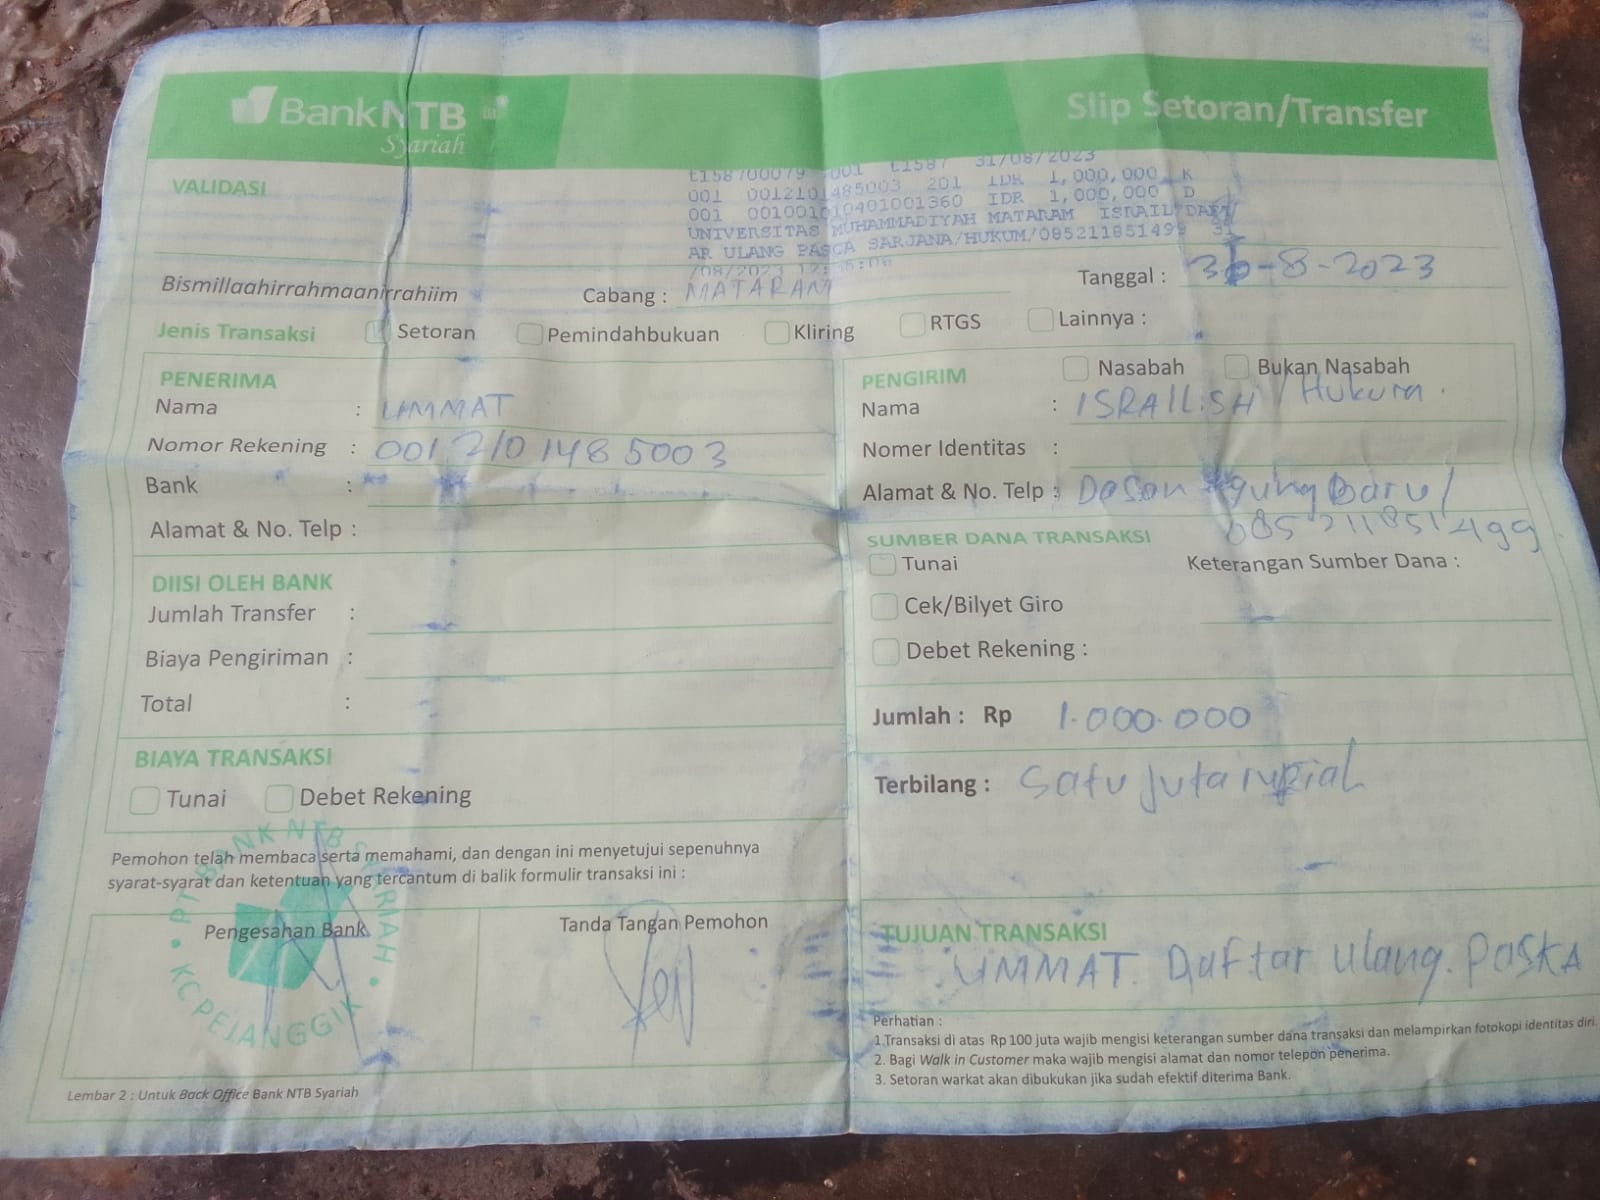 BankNTB
Syariah
Slip Setoran/Transfer
VALIDASI
E158700079 001 E1587 31/08/2023
001 0012101485003 201 IDR 1,000,000 K
001 001001010401001360 IDR 1,000,000 D
UNIVERSITAS MUHAMMADIYAH MATARAM ISRAIL DAFT
AR ULANG PASCA SARJANA/HUKUM/085211851499 31
/08/2023
Bismillaahirrahmaanirrahiim
Cabang : MATARAM
Tanggal : -8-2023
Jenis Transaksi Setoran Pemindahbukuan Kliring RTGS Lainnya :
PENERIMA
Nama : UMMAT
Nomor Rekening : 0012101485003
Bank :
Alamat & No. Telp :
DIISI OLEH BANK
Jumlah Transfer :
Biaya Pengiriman :
Total :
BIAYA TRANSAKSI
Tunai Debet Rekening
PENGIRIM Nasabah Bukan Nasabah
Nama : ISRAIL.SH / Hukum.
Nomer Identitas :
Alamat & No. Telp : Dasan Agung baru/
085211851499
SUMBER DANA TRANSAKSI
Tunai Keterangan Sumber Dana :
Cek/Bilyet Giro
Debet Rekening :
Jumlah : Rp 1.000.000
Terbilang : Satu juta rupiah
Pemohon telah membaca serta memahami, dan dengan ini menyetujui sepenuhnya
syarat-syarat dan ketentuan yang tercantum di balik formulir transaksi ini :
Pengesahan Bank
PT BANK NTB SYARIAH
KC PEJANGGIK
Tanda Tangan Pemohon
TUJUAN TRANSAKSI
UMMAT. Daftar Ulang. PASKA
Perhatian :
1.Transaksi di atas Rp 100 juta wajib mengisi keterangan sumber dana transaksi dan melampirkan fotokopi identitas diri.
2. Bagi Walk in Customer maka wajib mengisi alamat dan nomor telepon penerima.
3. Setoran warkat akan dibukukan jika sudah efektif diterima Bank.
Lembar 2 : Untuk Back Office Bank NTB Syariah